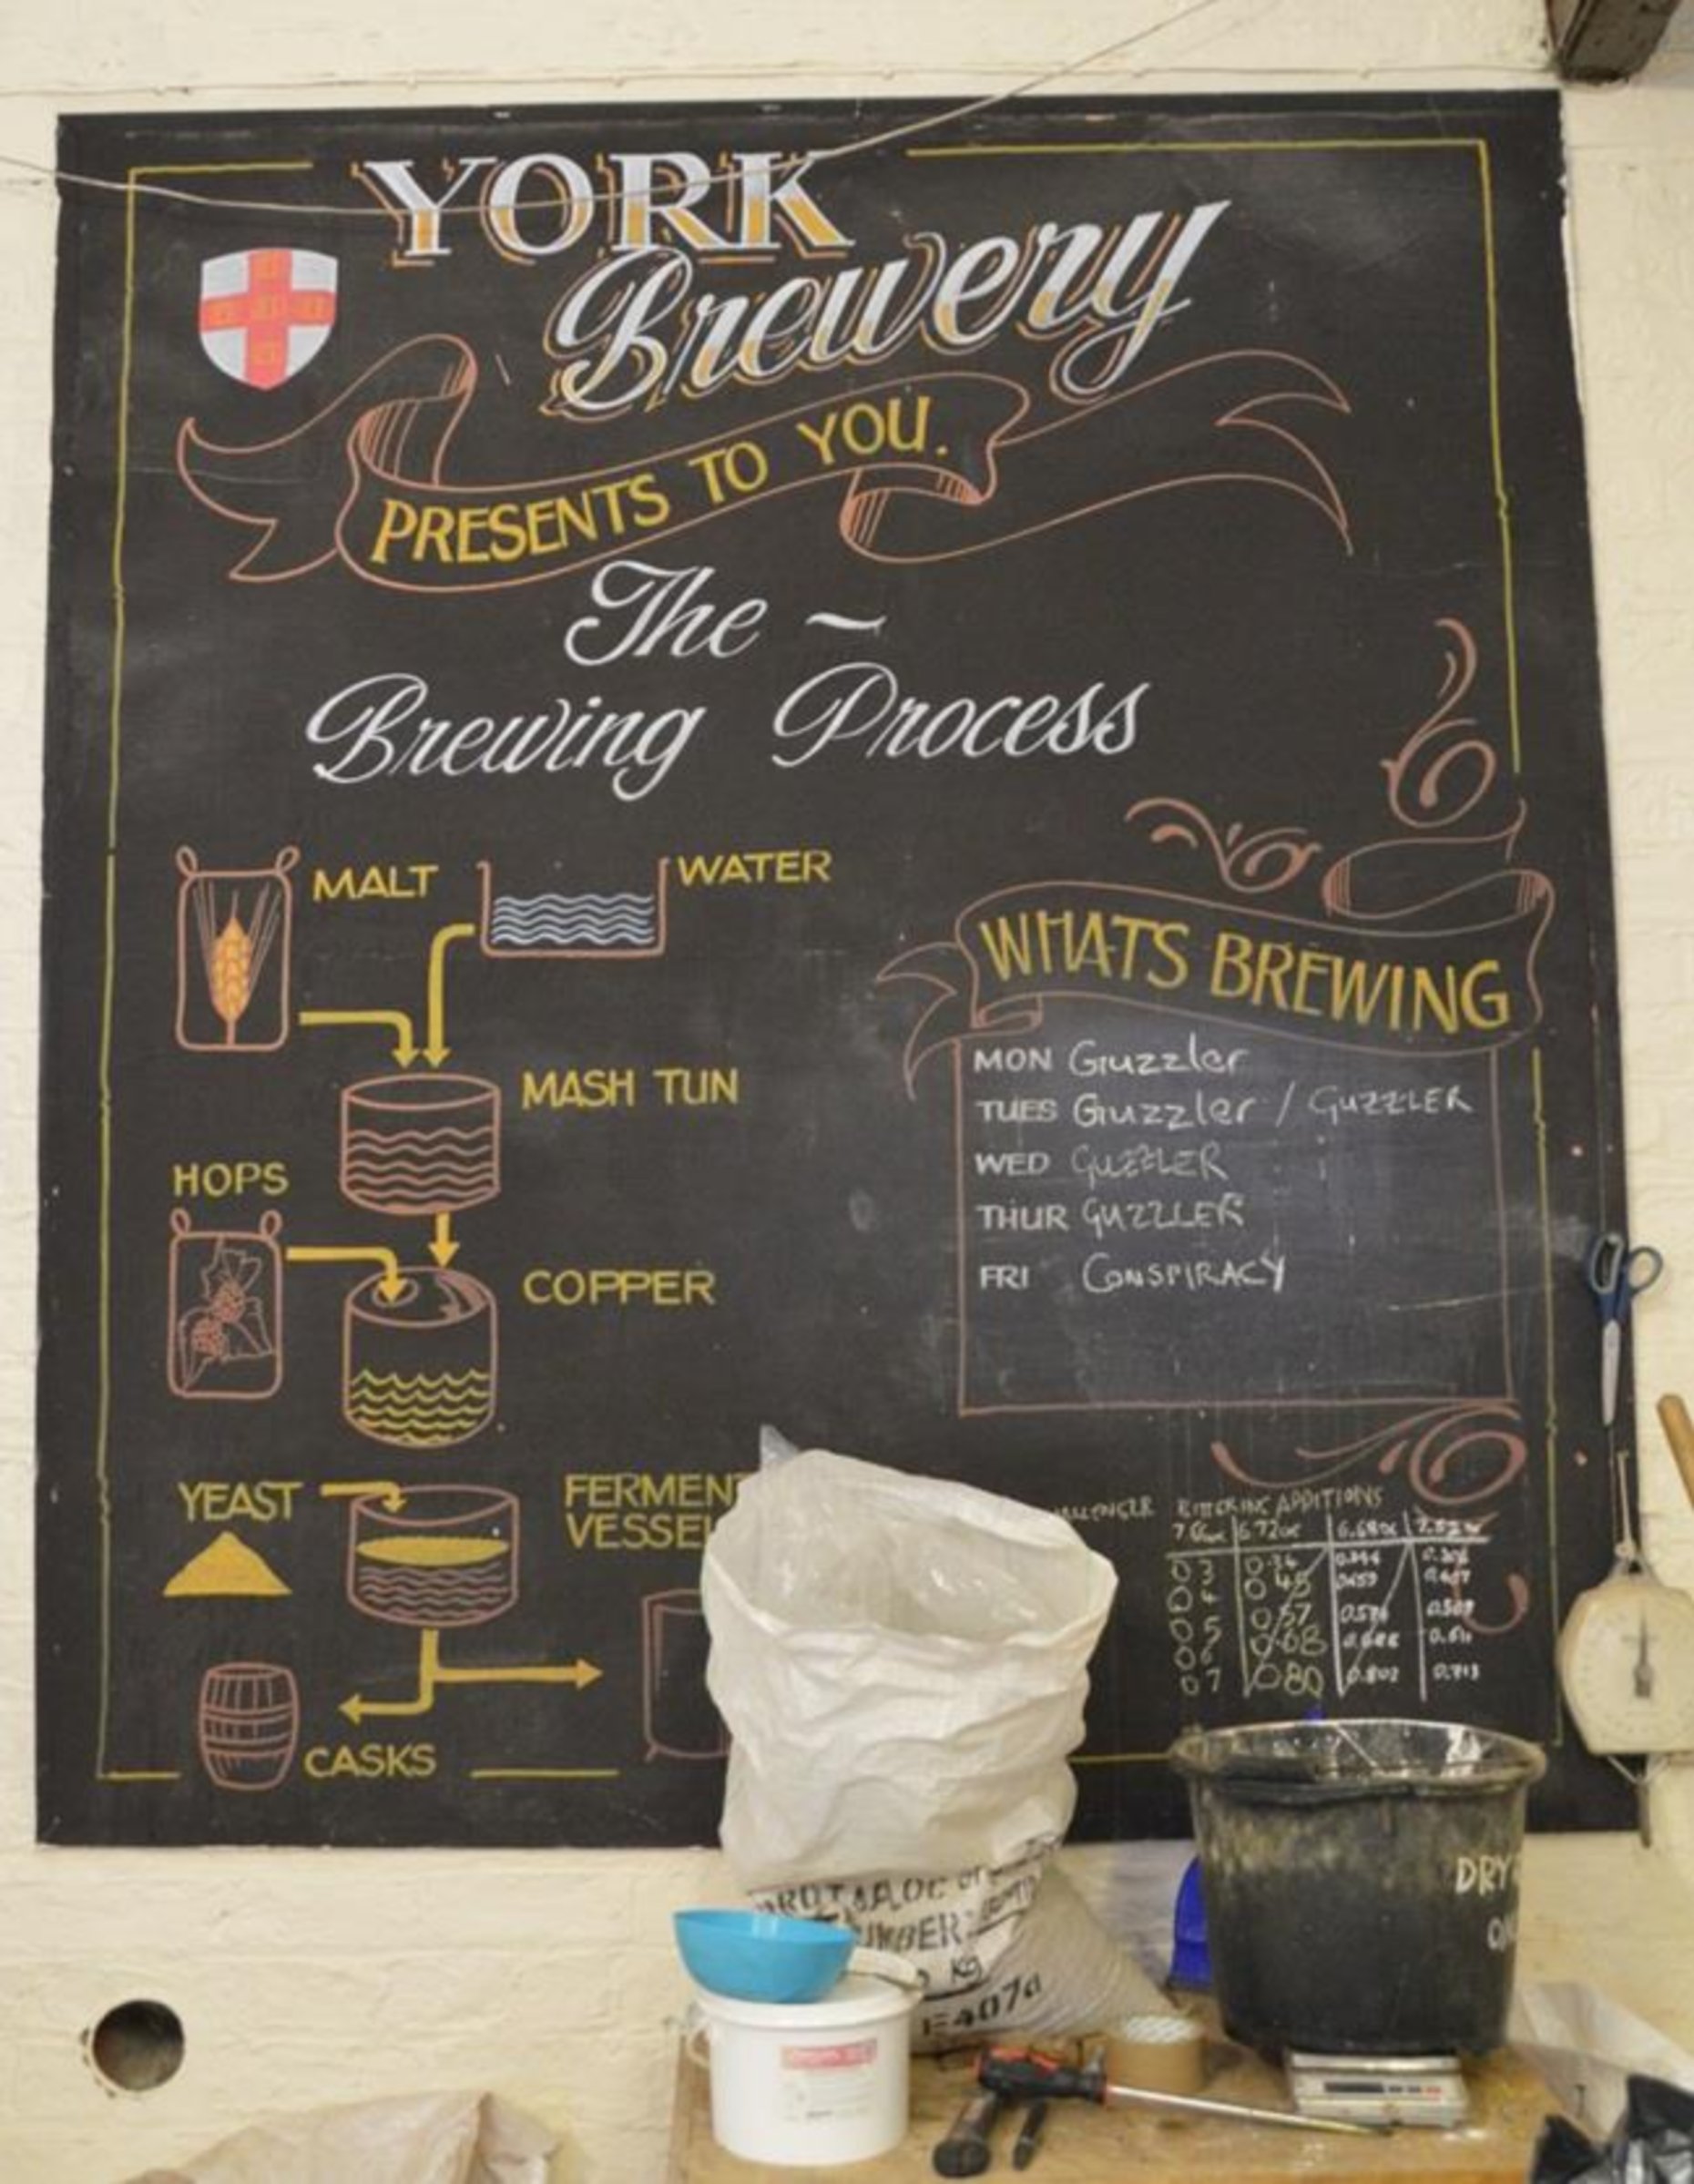 YORK
Brewery
PRESENTS TO YOU.
The ~
Brewing Process
MALT
WATER
MASH TUN
HOPS
COPPER
YEAST
FERMENT
VESSEL
CASKS
WHATS BREWING
MON Guzzler
TUES Guzzler / GUZZLER
WED GUZZLER
THUR GUZZLER
FRI CONSPIRACY
BITTERING ADDITIONS
03 0.34 0.344 0.306
04 0.45 0.459 0.407
05 0.57 0.574 0.509
06 0.68 0.688 0.611
07 0.80 0.802 0.713
DRY
KG